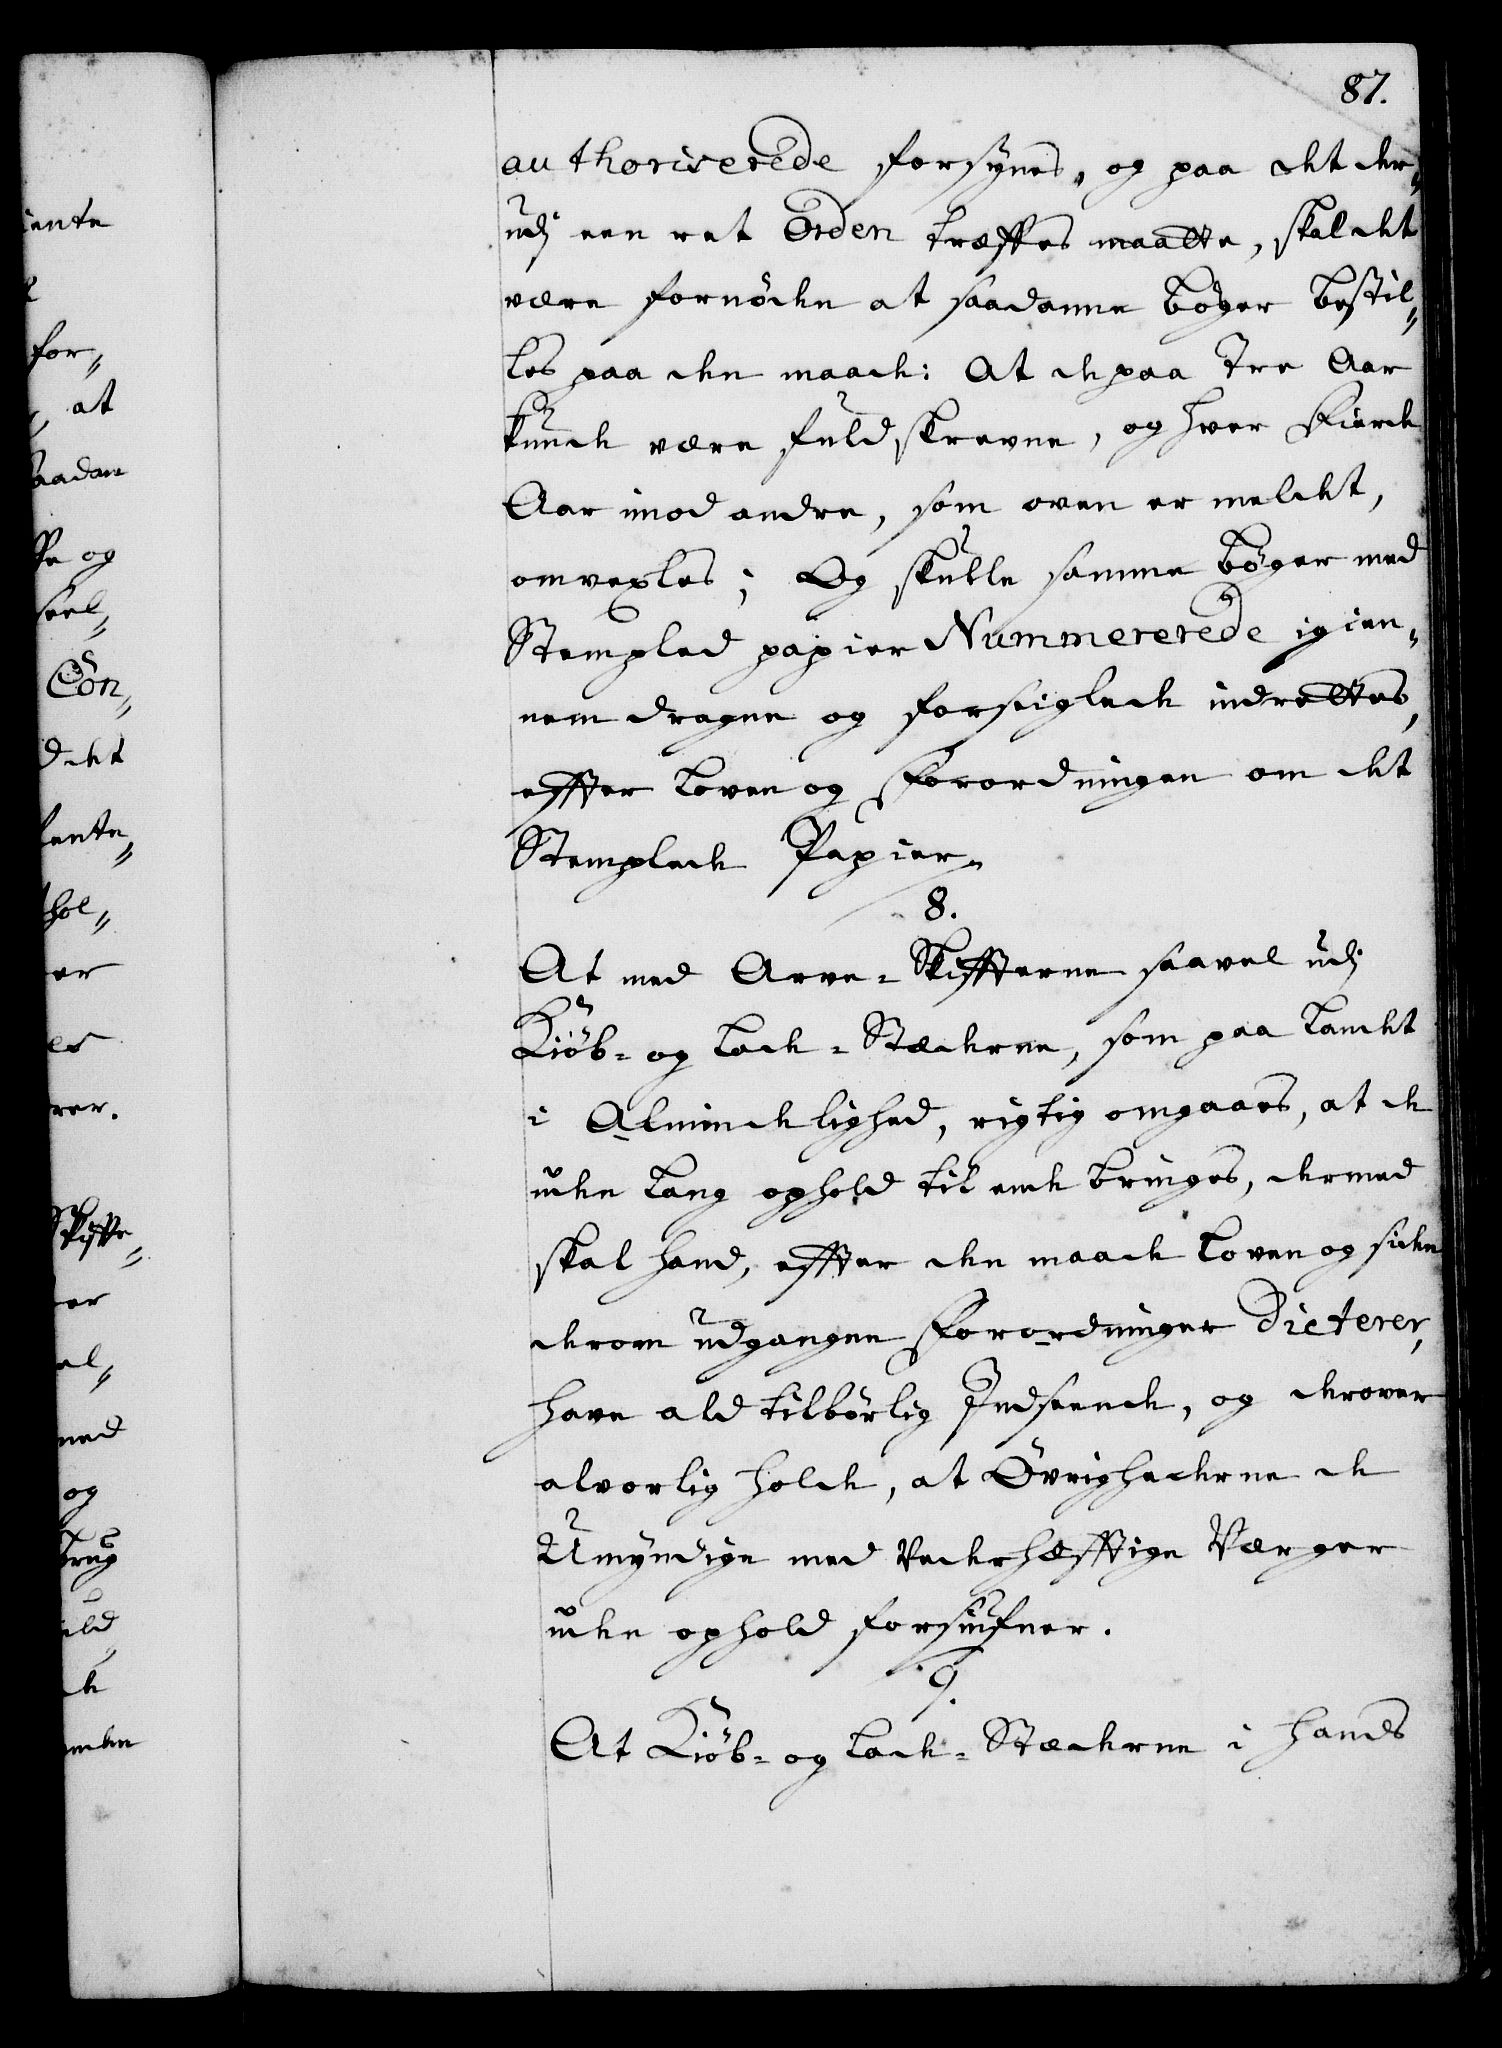 87.
authoriserede forsynes, og paa det der„
udj een ret Orden træffes maatte, skal det
være fornöden at saadanne böger bestil„
les paa den maade: At de paa Tre Aar
kunde være fuldskrevne, og hver Fierde
Aar imod andre, som oven er meldet,
omvexles; Og skulle samme böger med
Stempled papier Nummererede igien„
nem dragne og forseiglede indrettes,
effter loven og Forordningen om det
Stemplede Papier.
8.
At med Arve-Skiffterne saavel udj
Kiöb- og lade-Stæderne, som paa landet
i Almindelighed, rigtig omgaaes, at de
uden lang ophold til ende bringes, dermed
skal hand, effter den maade loven og siden
derom udgangne Forordninger Dicterer,
have ald tilbörlig Indseende, og derover
alvorlig holde, at Övrighederne de
Umyndige med vederhæfftige Værger
uden ophold forsiufner.
9.
At Kiöb- og lade-Stæderne i hands
iente
for„
at
saadan
og
seel„
Con„
det
hol„
er
rer.
Skiffte„
er
el„
med
og
brug
uld
de